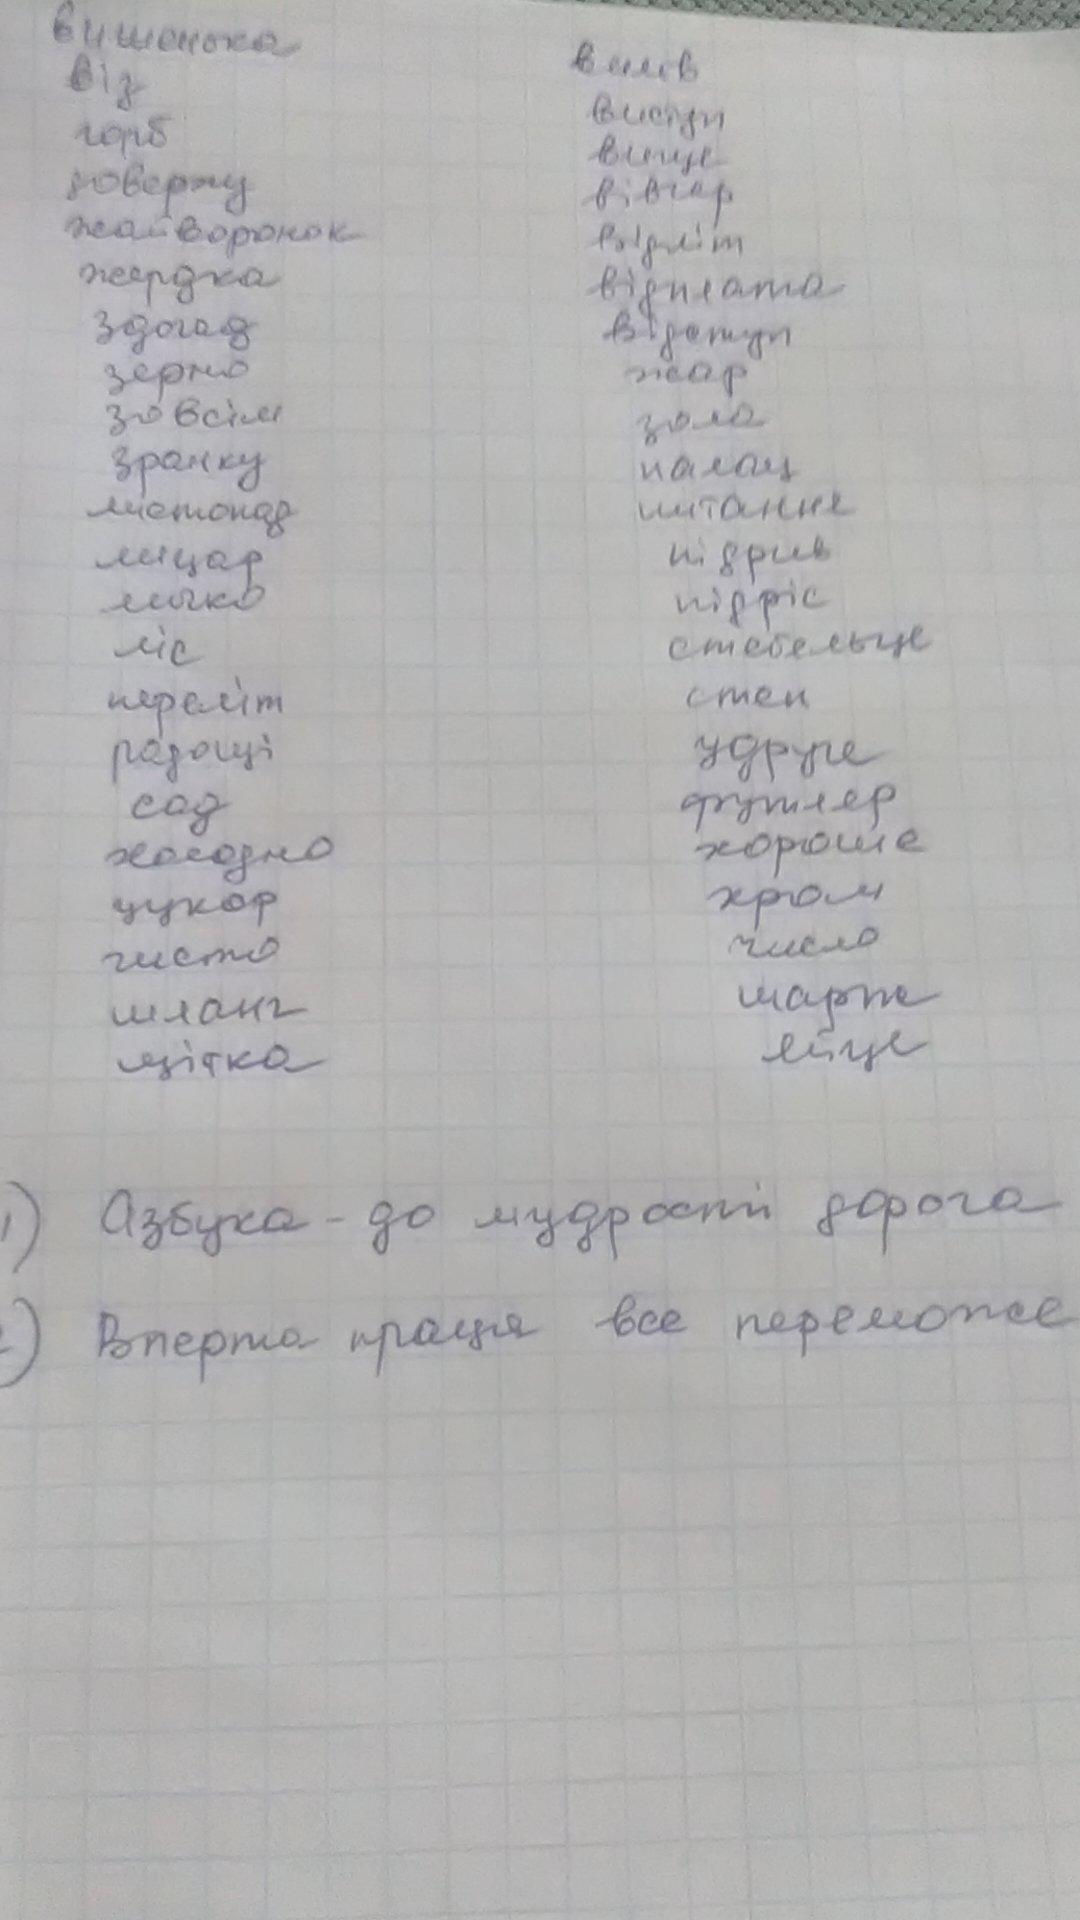 вишенька
віз
горб
доверху
жайворонок
жердка
здогад
зерно
зовсім
зранку
листопад
лицар
личко
ліс
переліт
радощі
сад
холодно
цукор
чисто
шланг
щітка
вилов
виступ
вище
вівчар
відліт
відплата
відступ
жар
зола
палац
питання
підрив
підріс
стебельце
степ
удруге
футляр
хороше
хром
число
шарж
яйце
1) Азбука - до мудрості дорога
2) Вперта праця все переможе